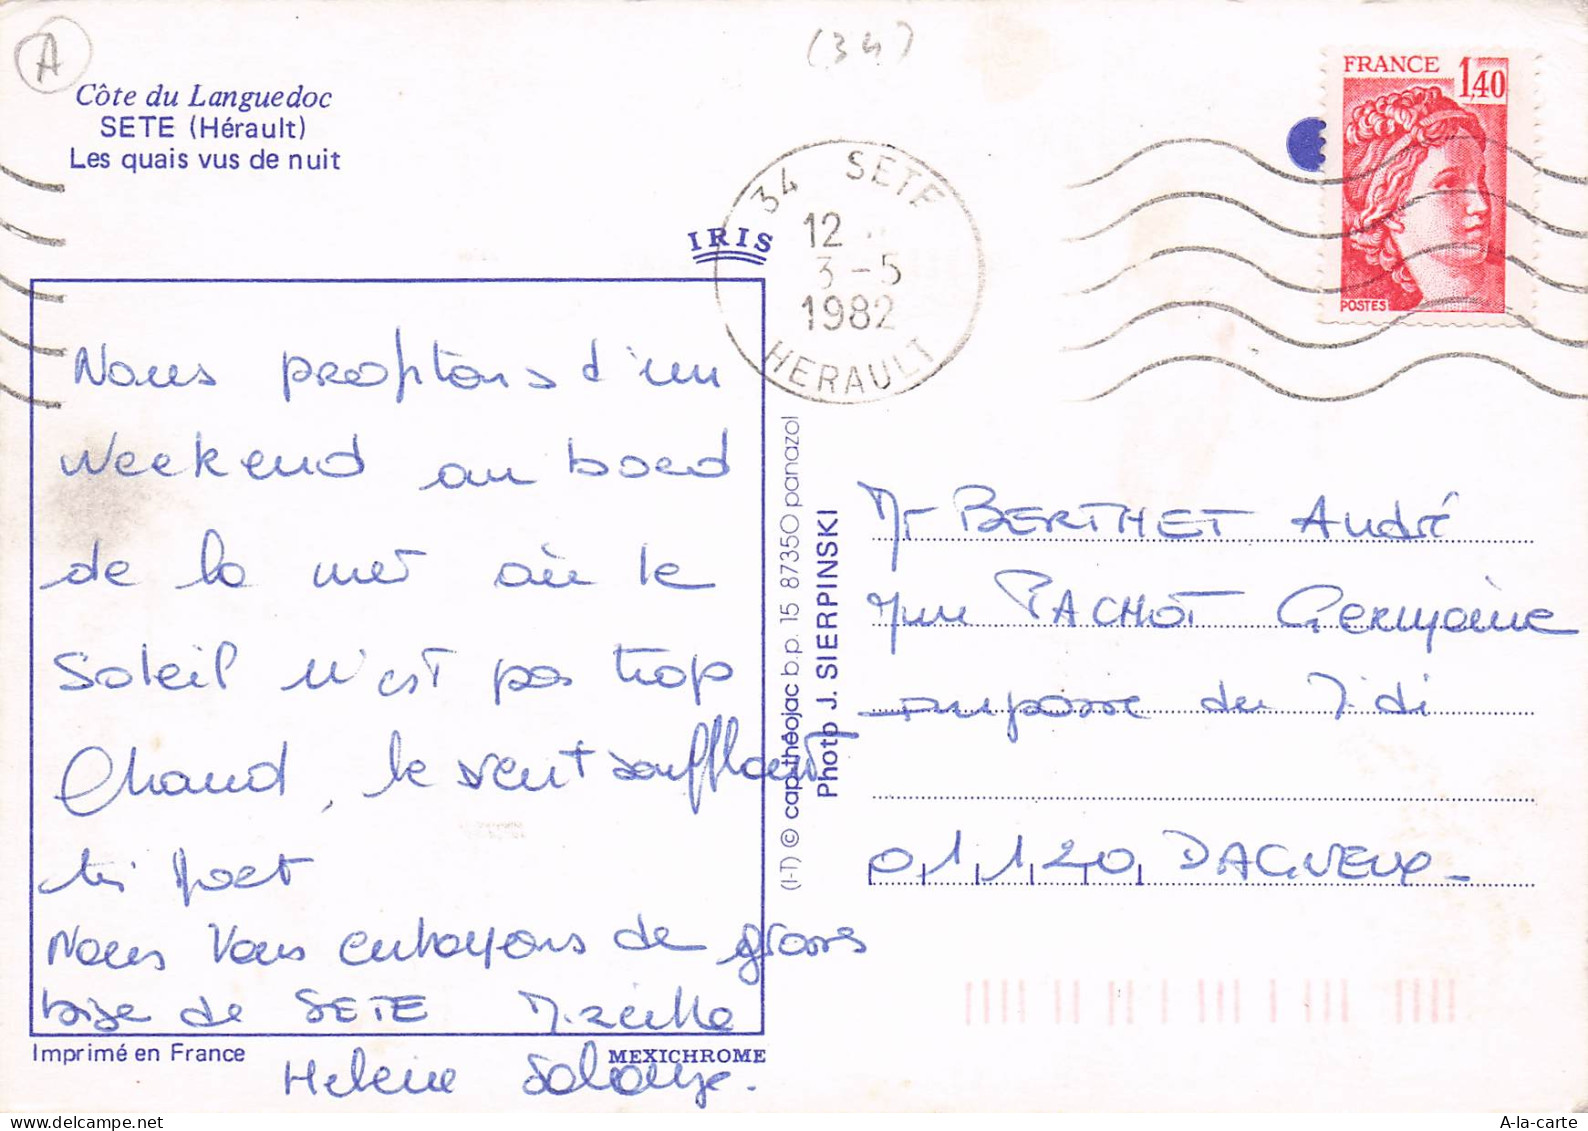 A
(34)
Côte du Languedoc
SETE (Hérault)
Les quais vus de nuit
FRANCE 1,40
POSTES
34 SETE
12
3-5
1982
HERAULT
IRIS
Nous profitons d'un
Weekend au bord
de la mer où le
Soleil n'est pas trop
Chaud, le vent soufflant
très fort
Nous Vous envoyons de grosses
bise de SETE Mireille
Helene Solange.
Imprimé en France
MEXICHROME
(I-T) © cap-théojac b.p. 15 87350 panazol
Photo J. SIERPINSKI
Mr BERTHET André
Mme PACHOT Germaine
Impasse du Midi
01120 DAGNEUX
A-la-carte